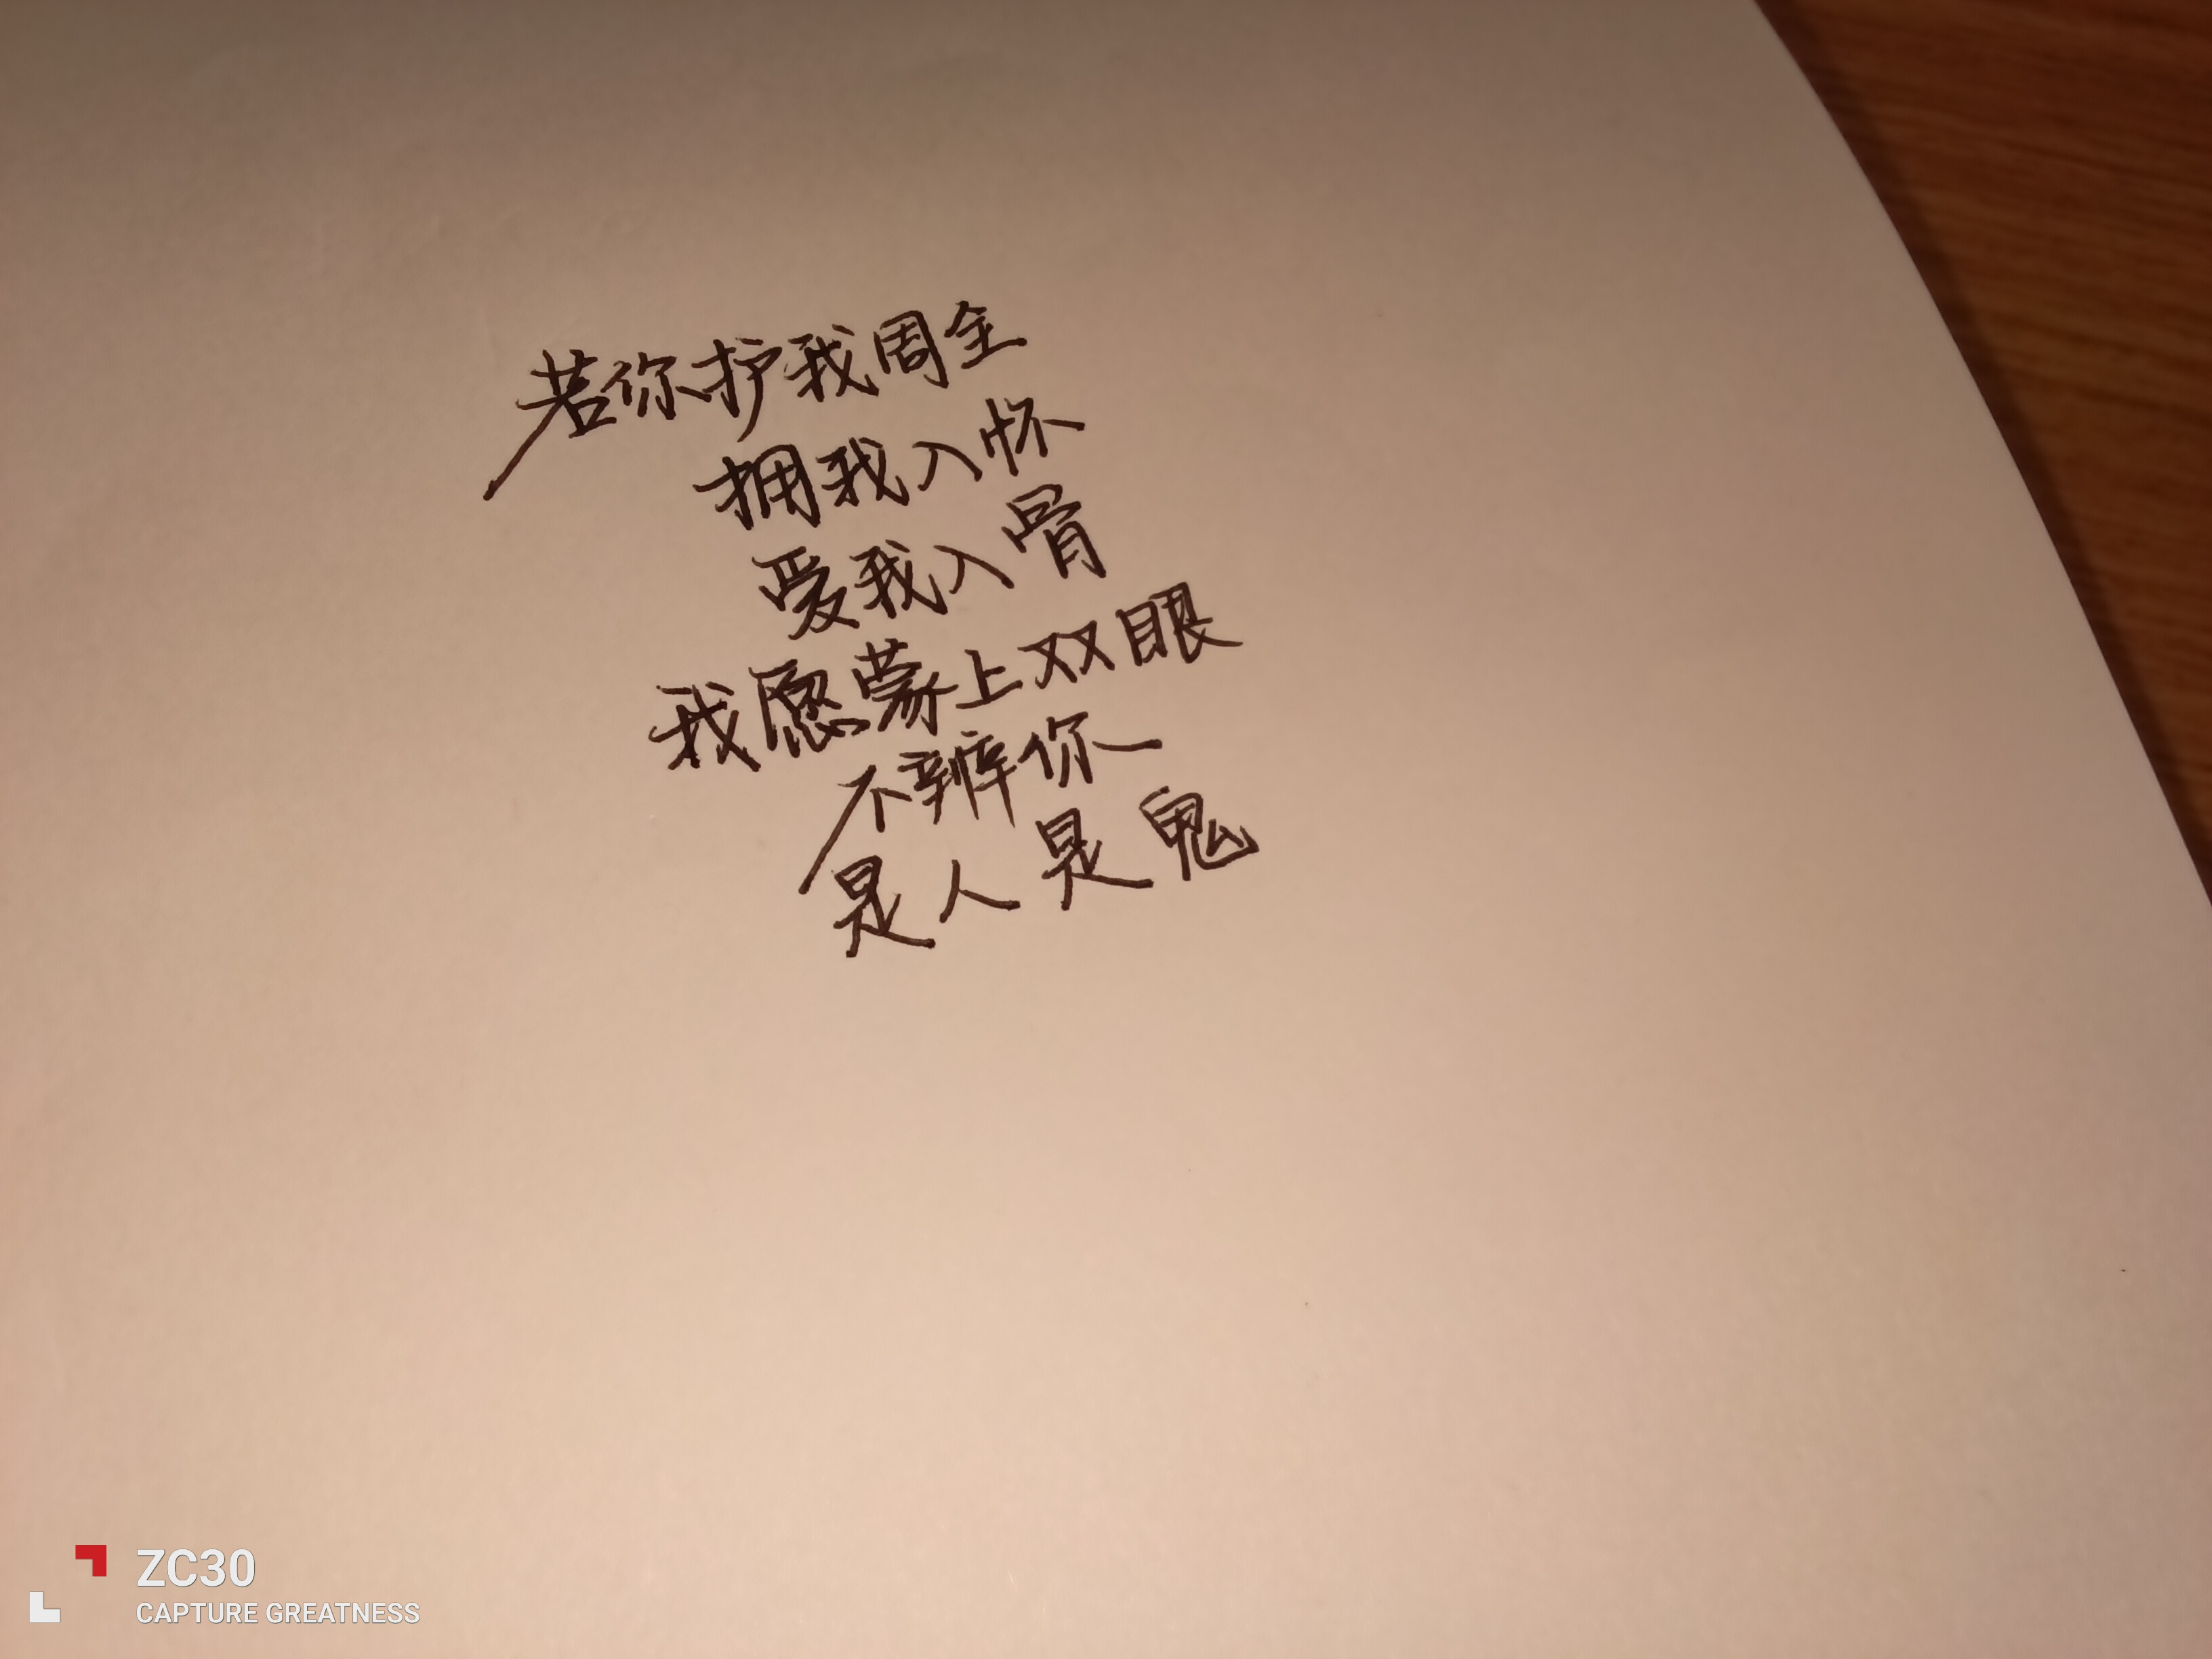 若你护我周全
拥我入怀
爱我入骨
我愿蒙上双眼
不辨你
是人是鬼
ZC30
CAPTURE GREATNESS